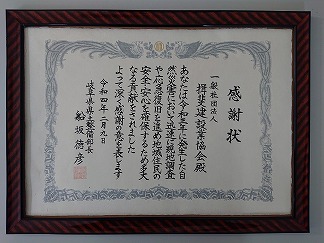 感謝状
一般社団法人
揖斐建設業協会殿
あなたは令和三年に発生した自
然災害において迅速に現地調査
や応急復旧を進め地域住民の
安全・安心を確保するため多大
なる貢献をされました
よって深く感謝の意を表します
令和四年二月九日
岐阜県県土整備部長
船坂徳彦